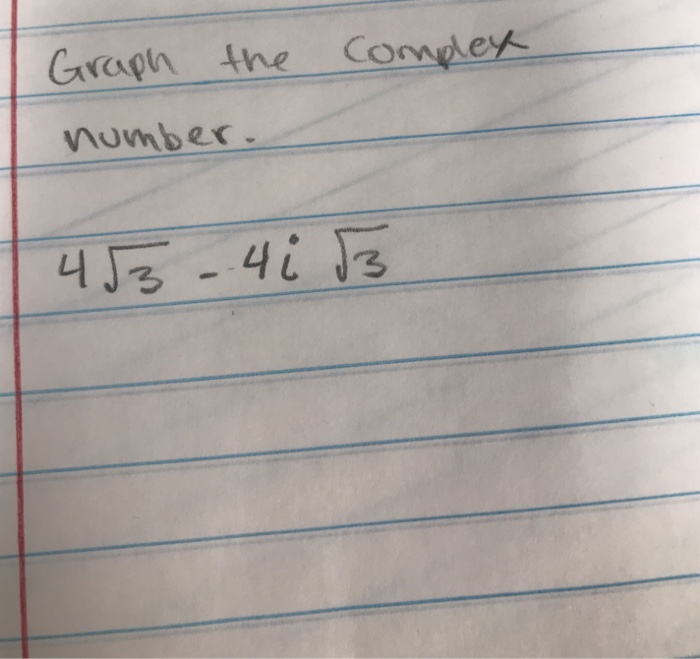 Graph the complex
number.
4√3 - 4i √3